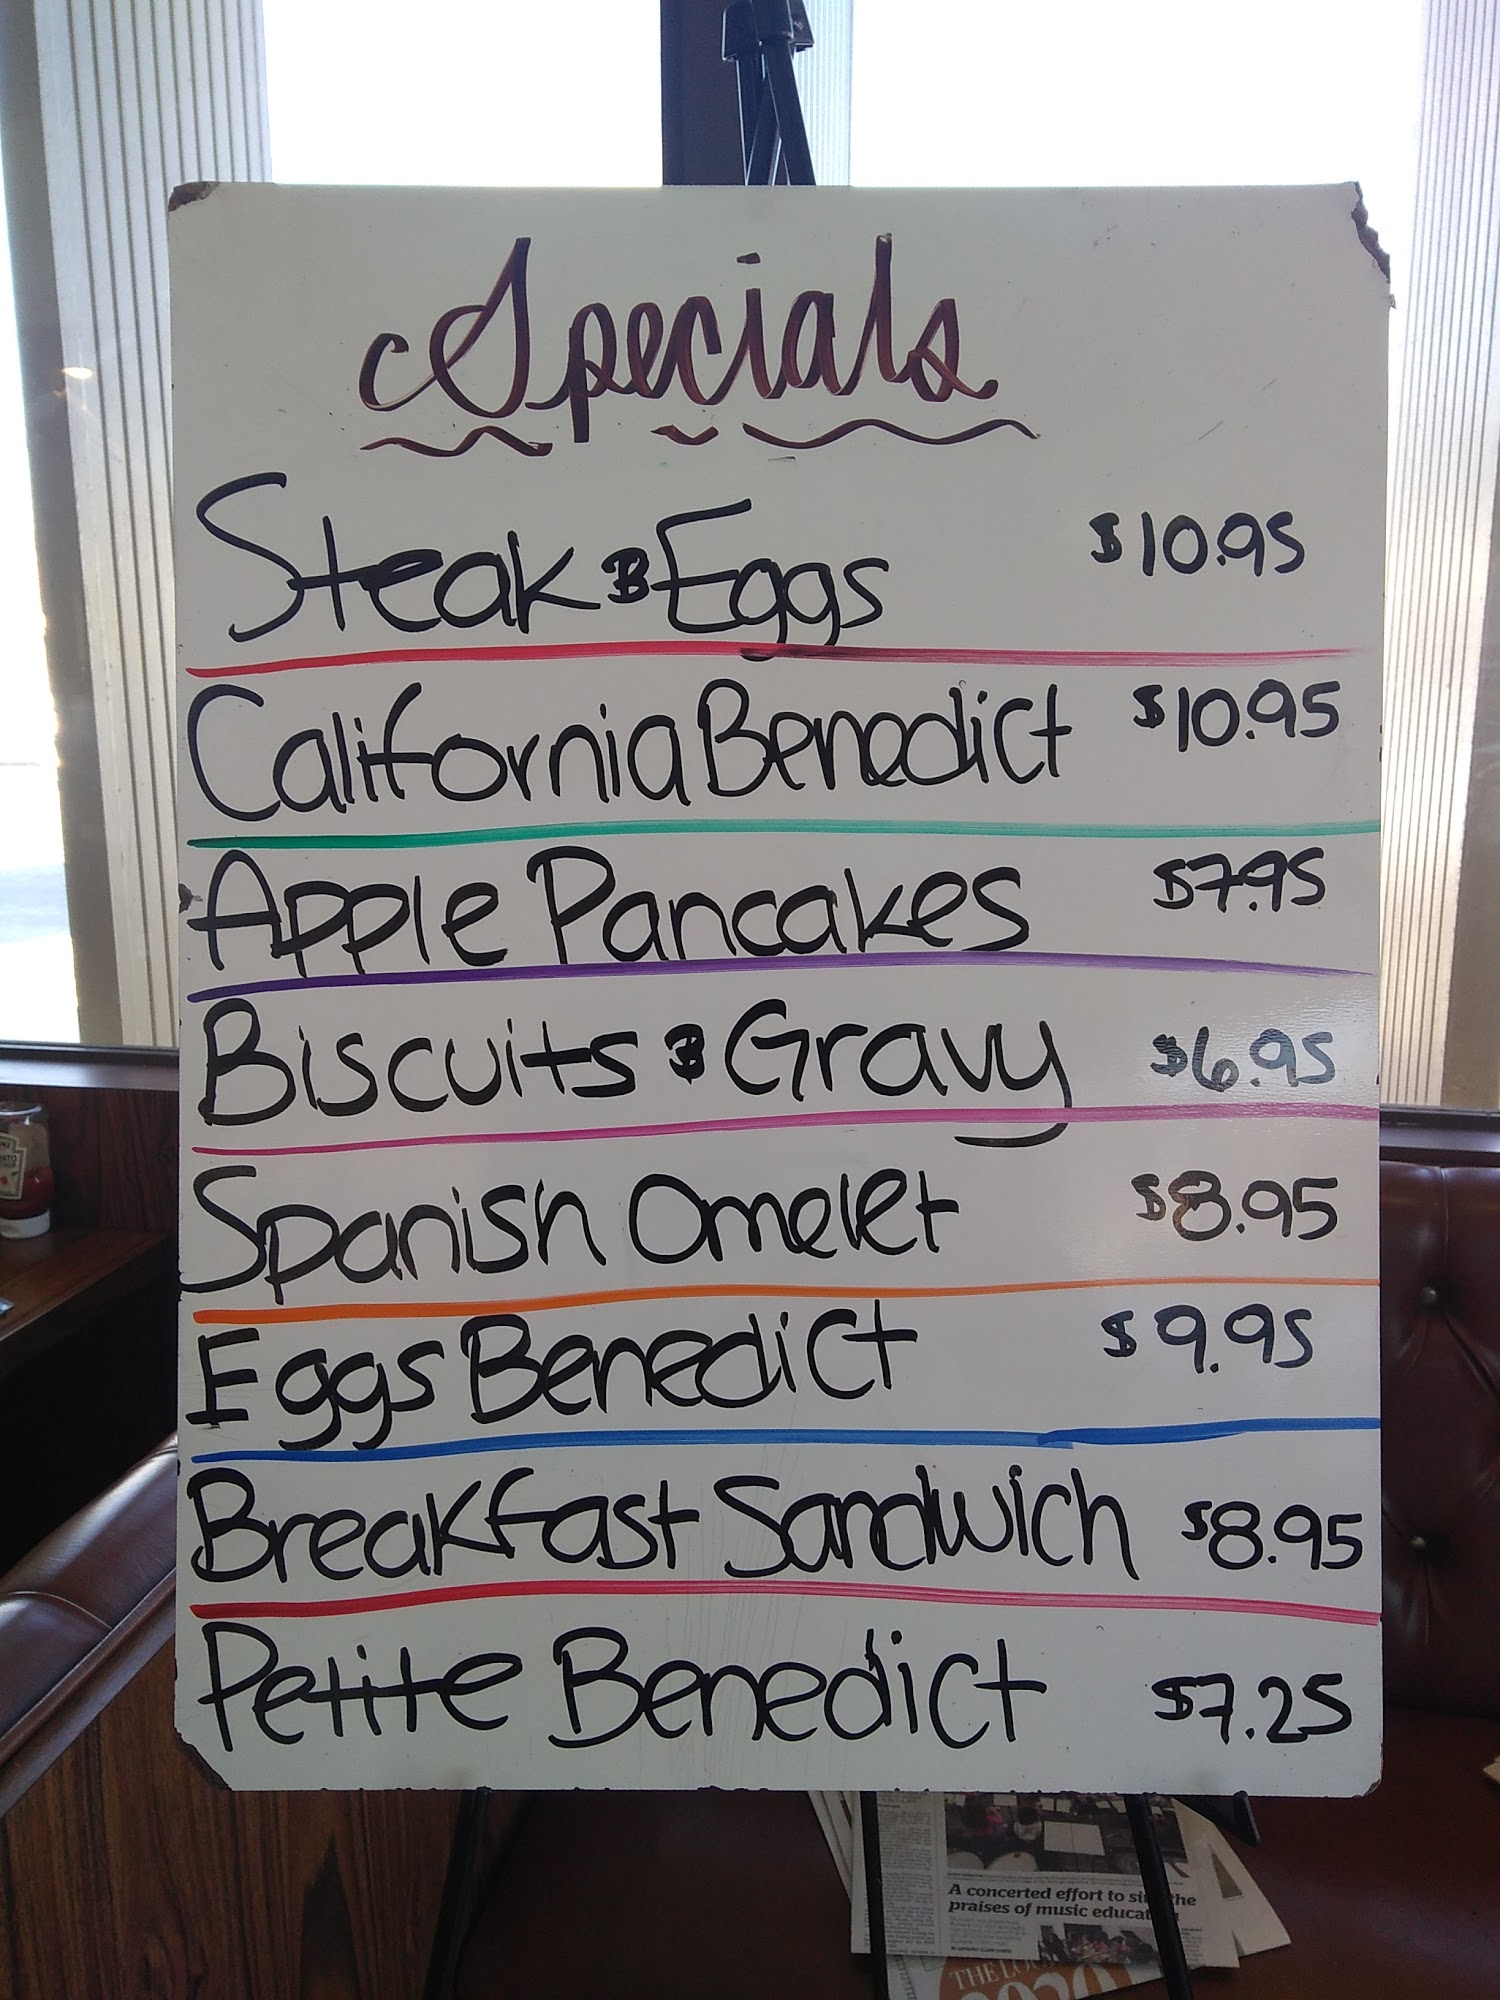 Specials
Steak & Eggs $10.95
California Benedict $10.95
Apple Pancakes $7.95
Biscuits & Gravy $6.95
Spanish Omelet $8.95
Eggs Benedict $9.95
Breakfast Sandwich $8.95
Petite Benedict $7.25
A concerted effort to the
praises of music
THE
2020